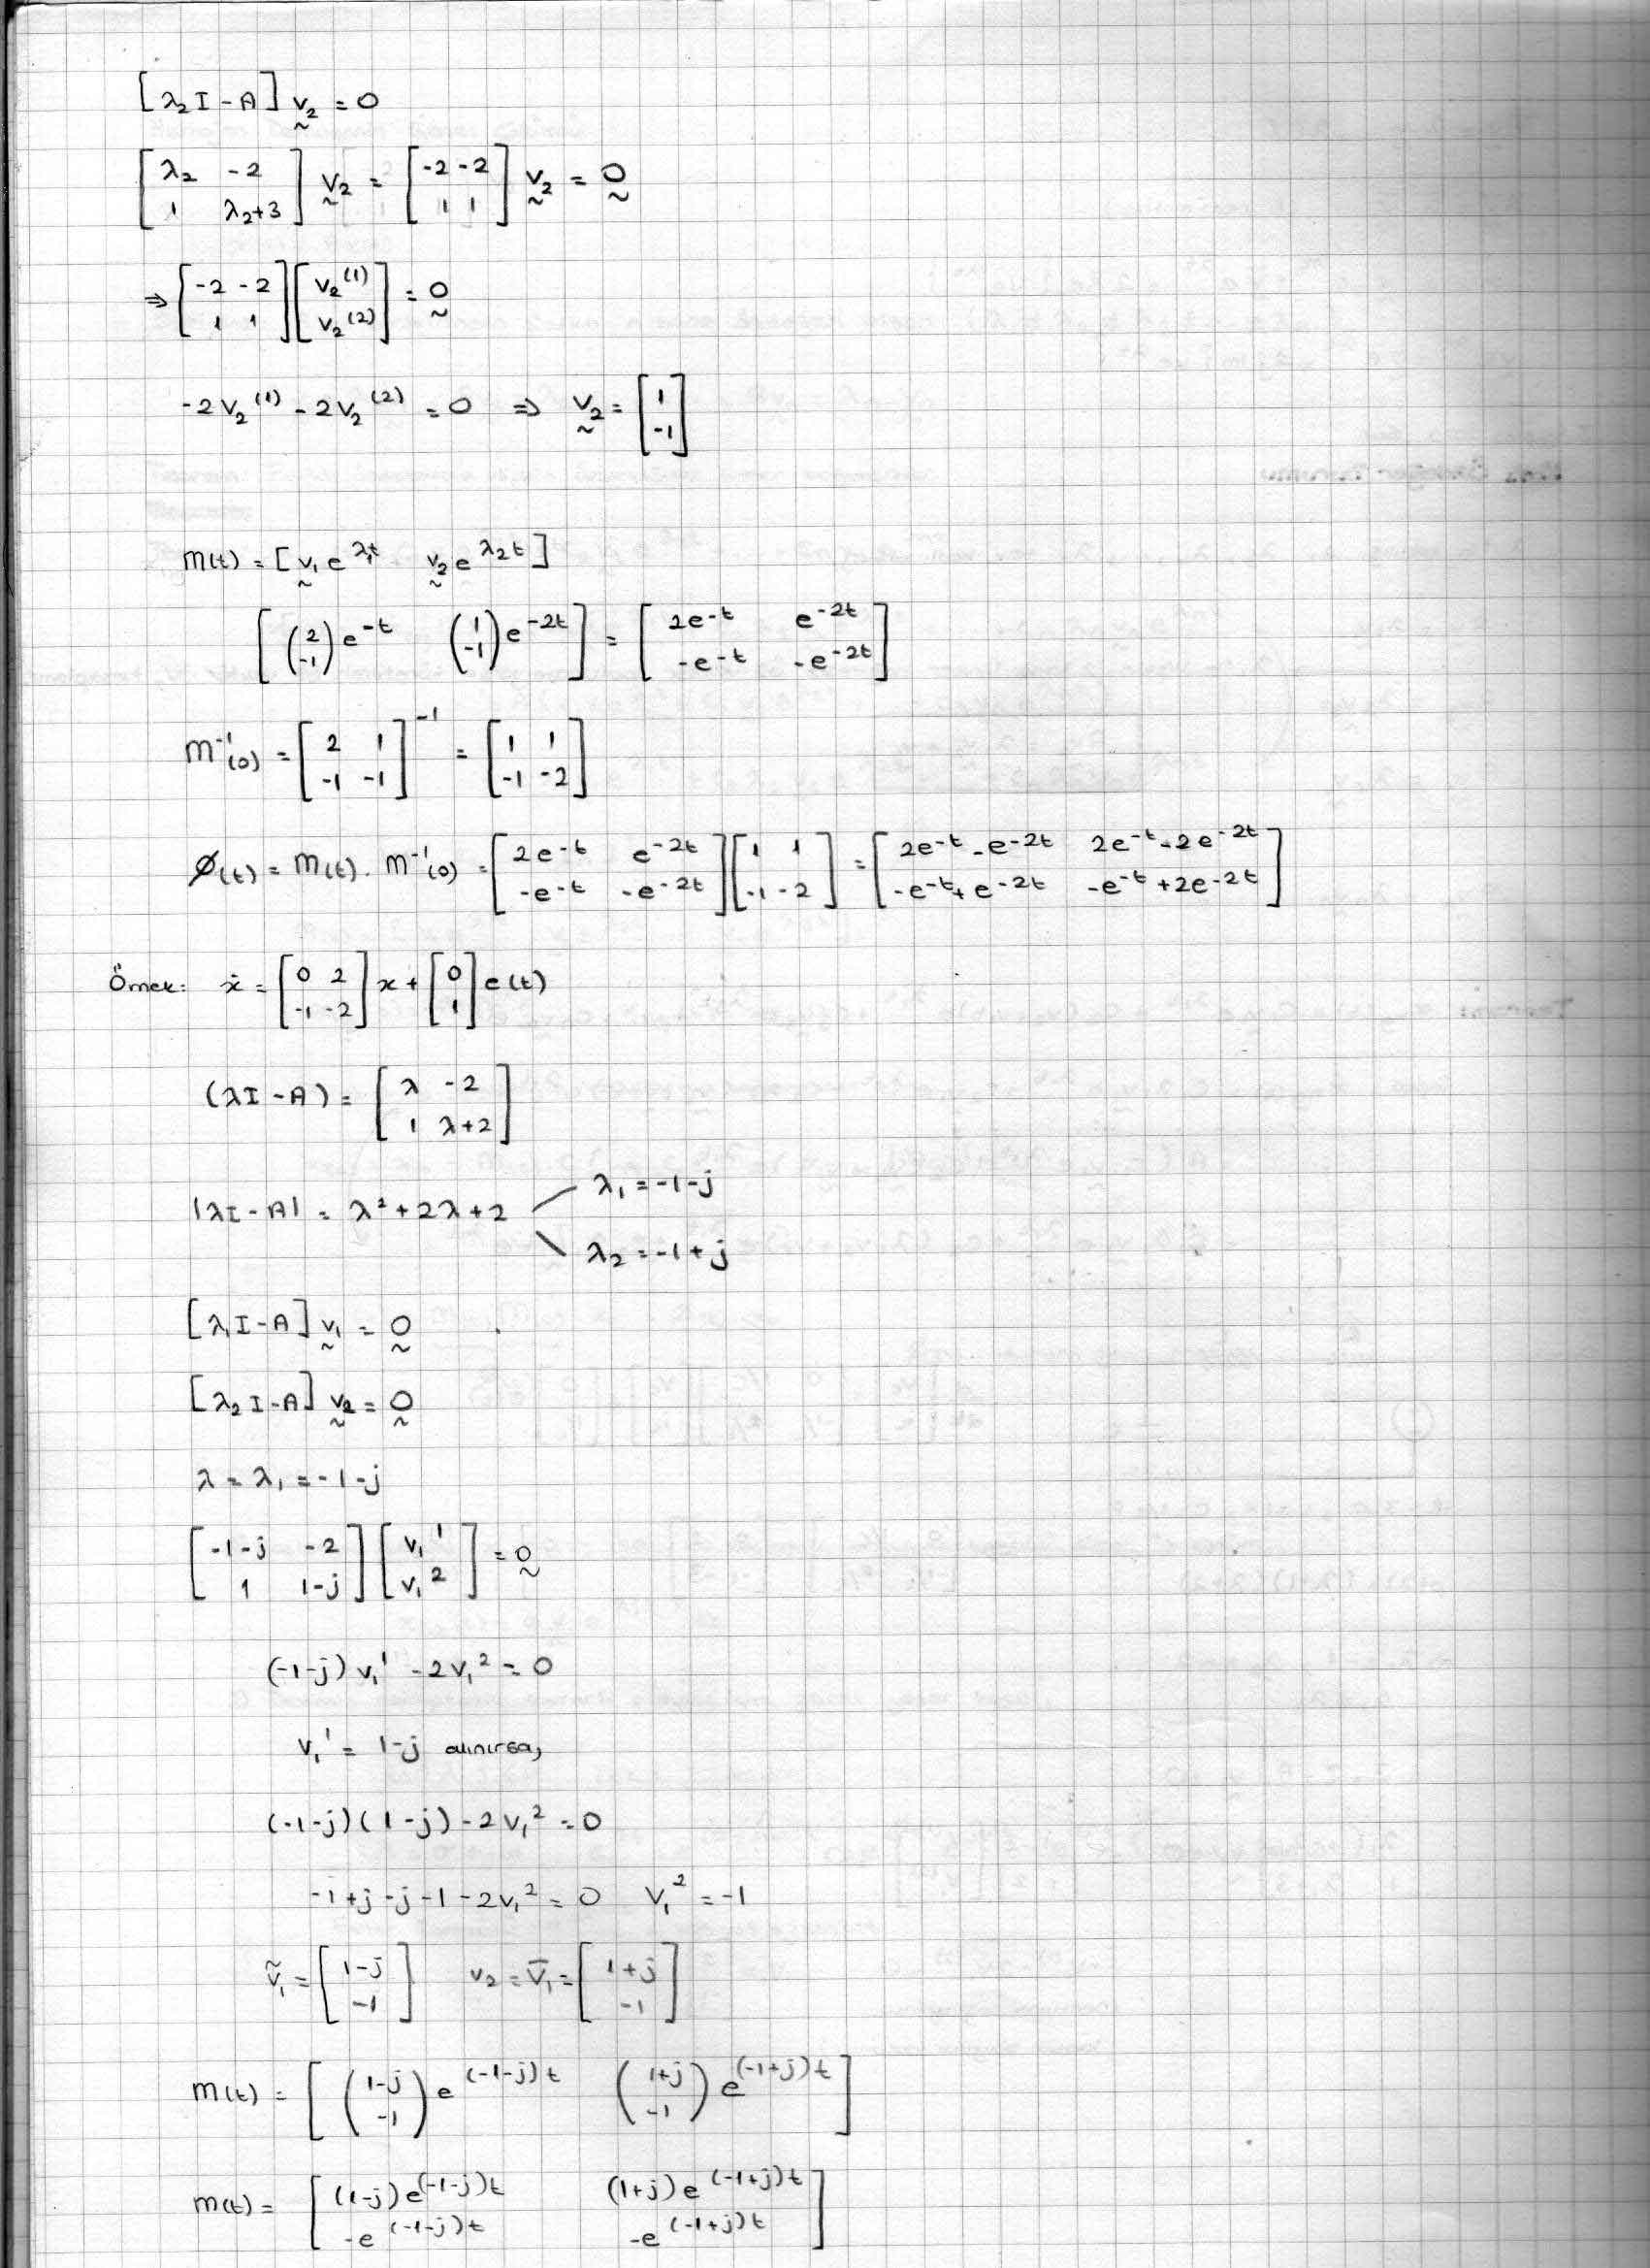 [λ₂I - A] v₂ = 0
[λ₂ -2; 1 λ₂+3] v₂ = [-2 -2; 1 1] v₂ = 0
⇒ [-2 -2; 1 1] [v₂⁽¹⁾; v₂⁽²⁾] = 0
-2v₂⁽¹⁾ - 2v₂⁽²⁾ = 0 ⇒ v₂ = [1; -1]
m(t) = [v₁e^λ₁t v₂e^λ₂t]
[(2; -1)e^-t (1; -1)e^-2t] = [2e^-t e^-2t; -e^-t -e^-2t]
m⁻¹(0) = [2 1; -1 -1]⁻¹ = [1 1; -1 -2]
Ø(t) = m(t). m⁻¹(0) = [2e^-t e^-2t; -e^-t -e^-2t] [1 1; -1 -2] = [2e^-t - e^-2t 2e^-t - 2e^-2t; -e^-t + e^-2t -e^-t + 2e^-2t]
Örnek: ẋ = [0 2; -1 -2] x + [0; 1] e(t)
(λI - A) = [λ -2; 1 λ+2]
|λI - A| = λ² + 2λ + 2
λ₁ = -1-j
λ₂ = -1+j
[λ₁I - A] v₁ = 0
[λ₂I - A] v₂ = 0
λ = λ₁ = -1-j
[-1-j -2; 1 1-j] [v₁¹; v₁²] = 0
(-1-j) v₁¹ - 2v₁² = 0
v₁¹ = 1-j alınırsa,
(-1-j)(1-j) - 2v₁² = 0
-1+j-j-1-2v₁² = 0 v₁² = -1
ṽ₁ = [1-j; -1] v₂ = v̄₁ = [1+j; -1]
m(t) = [(1-j; -1)e^(-1-j)t (1+j; -1)e^(-1+j)t]
m(t) = [(1-j)e^(-1-j)t (1+j)e^(-1+j)t; -e^(-1-j)t -e^(-1+j)t]